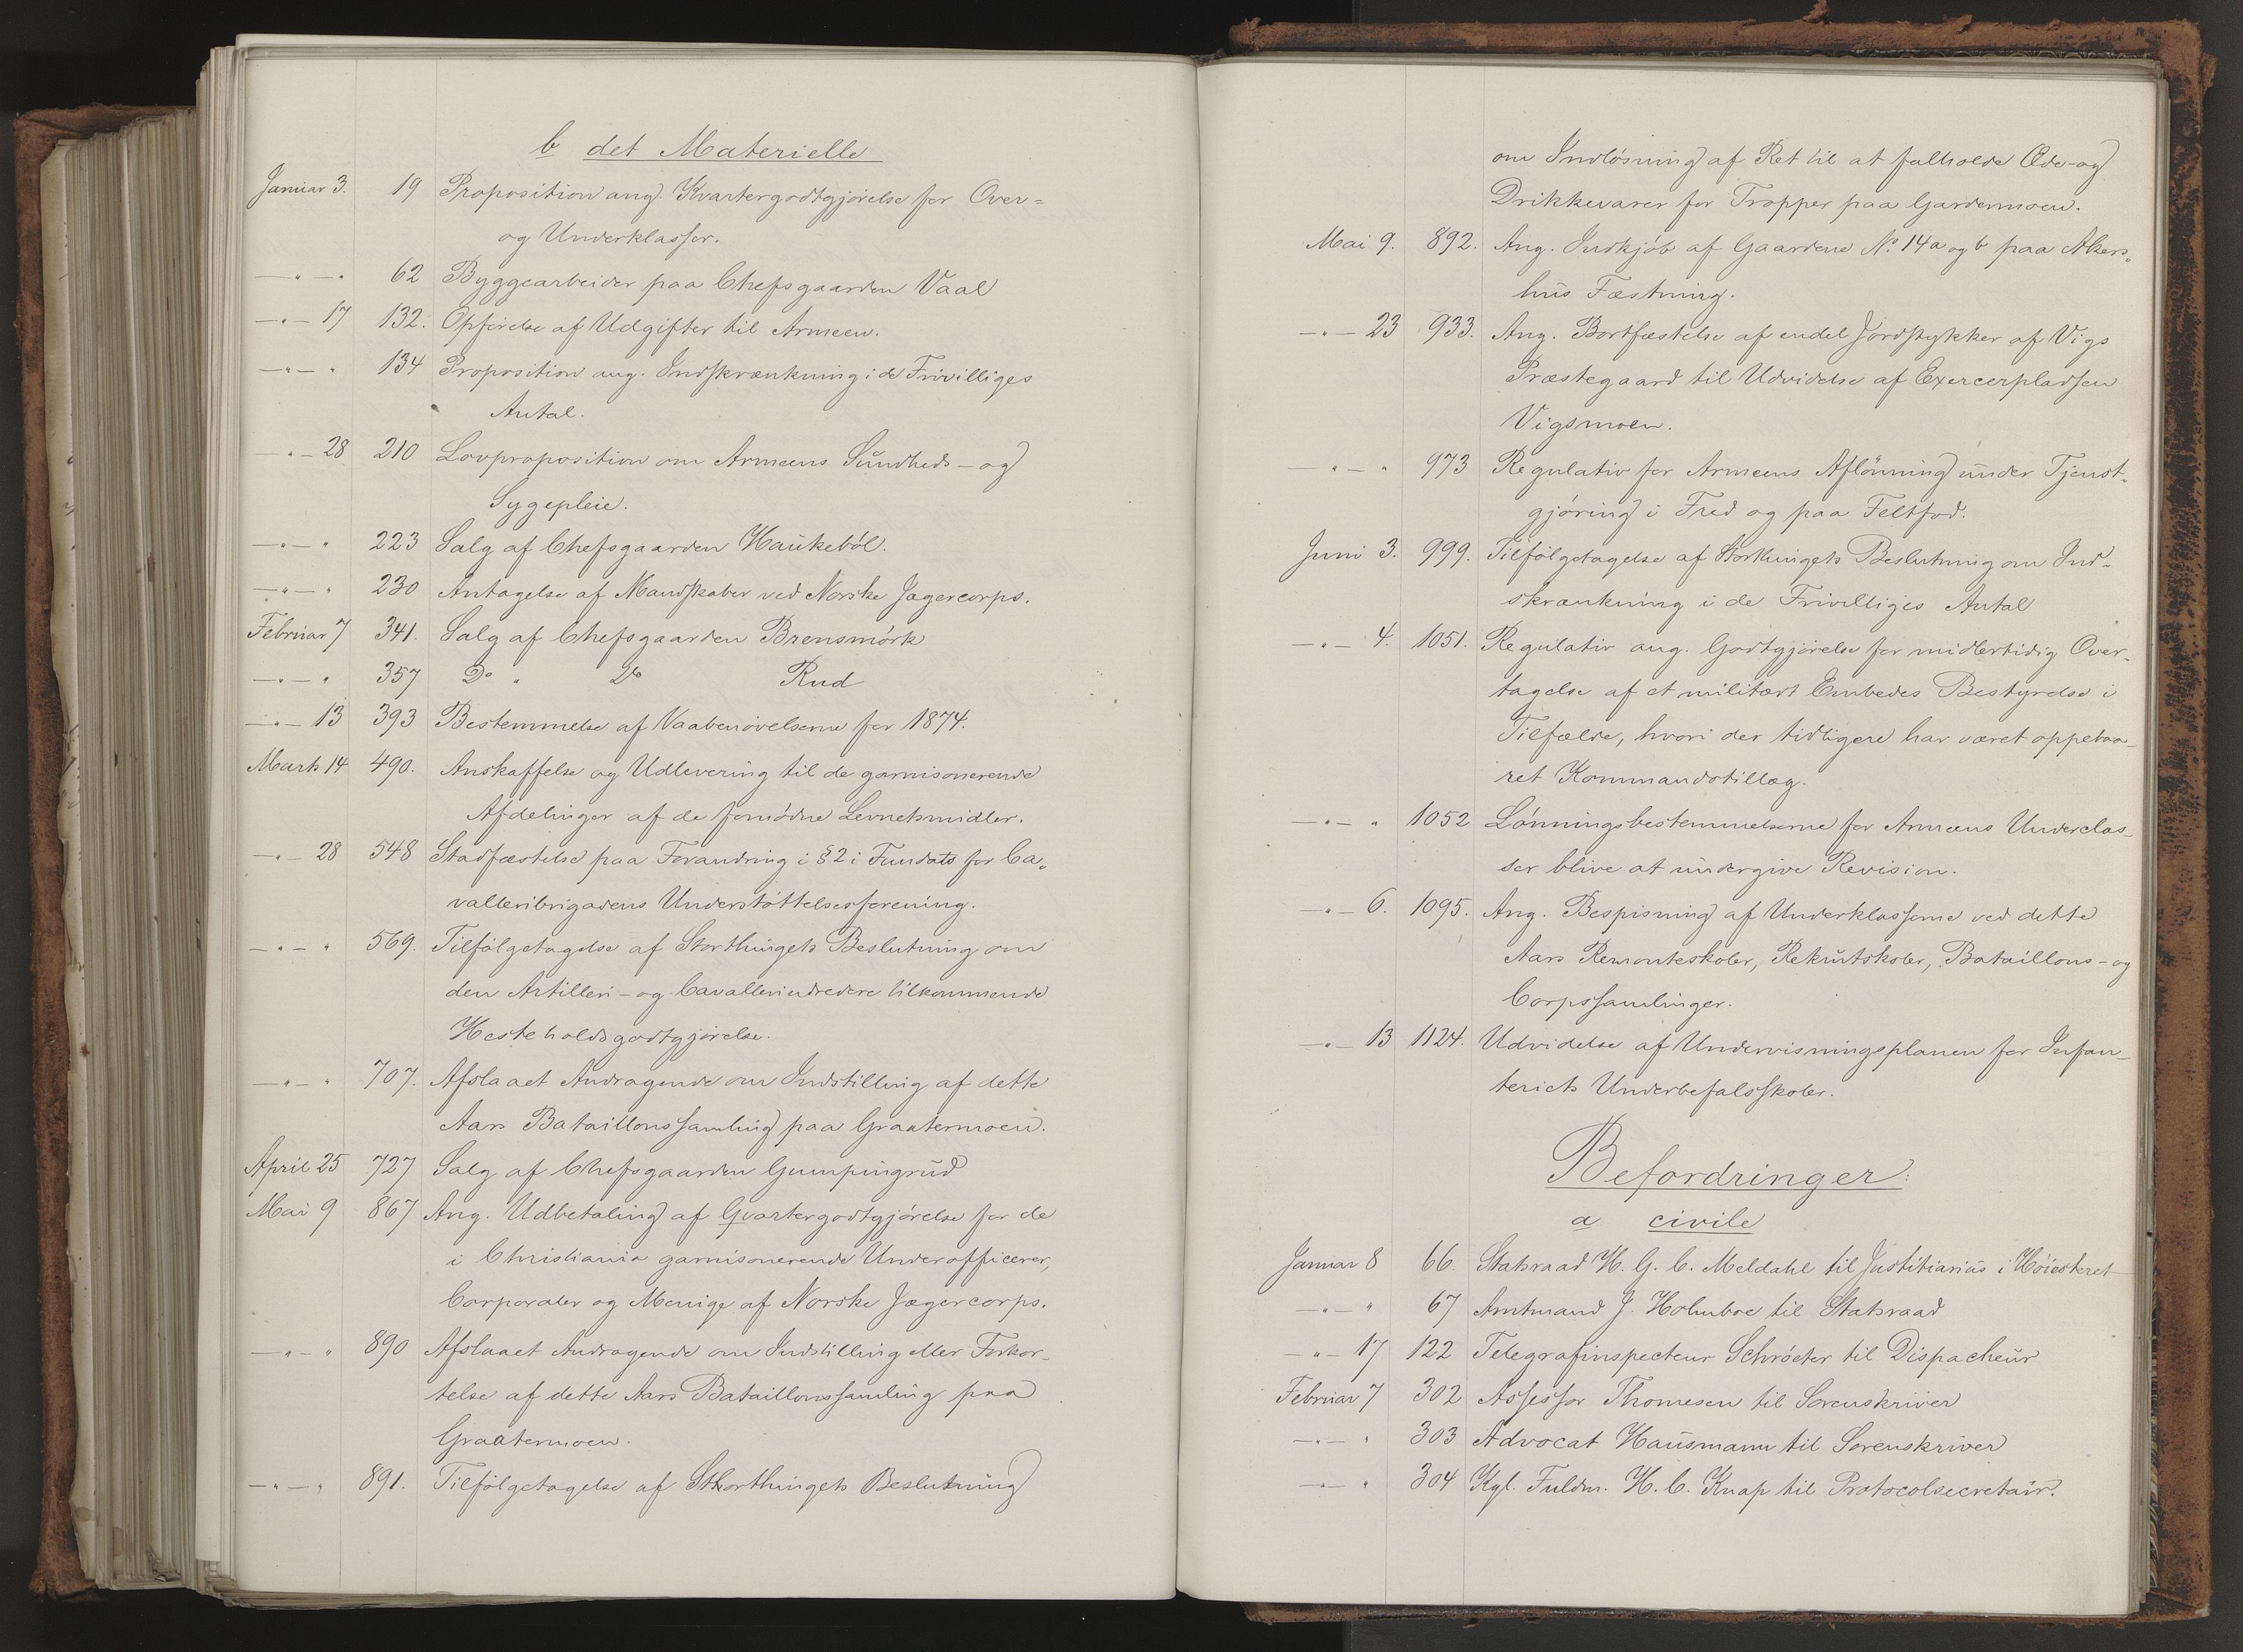 b det Materielle
Januar 3. 19 Proposition ang. Kvartergodtgjørelse for Over=
og Underklasser.
—"— " 62 Byggearbeider paa Chefsgaarden Vaal
—"— 17 132. Opførelse af Udgifter til Armeen.
—"— " 134 Proposition ang. Indskrænkning i de Frivilliges
Antal.
—"— 28 210 Lovproposition om Armeens Sundheds- og
Sygepleie.
—"— " 223 Salg af Chefsgaarden Haukebøl.
—"— " 230 Antagelse af Mandskaber ved Norske Jægercorps.
Februar 7 341. Salg af Chefsgaarden Brensmørk
—"— " 357 Do " Do Rud
—"— 13 393 Bestemmelse af Vaabenøvelserne for 1874.
Marts 14 490. Anskaffelse og Udlevering til de garnisonerende
Afdelinger af de fornødne Levnetsmidler.
—"— 28 548 Stadfæstelse paa Forandring i § 2 i Fundats for Ca=
valleribrigadens Understøttelsesforening.
—"— " 569. Tilfølgetagelse af Storthingets Beslutning om
den Artilleri- og Cavalleriudredere tilkommende
Hesteholdsgodtgjørelse.
—"— " 707. Afslaaet Andragende om Indstilling af dette
Aars Bataillonssamling paa Graatermoen.
April 25 727 Salg af Chefsgaarden Gumpingrud
Mai 9 867 Ang. Udbetaling af Qvartergodtgjørelse for de
i Christiania garnisonerende Underofficerer,
Corporaler og Menige af Norske Jægercorps.
—"— " 890 Afslaaet Andragende om Indstilling eller Forkor-
telse af dette Aars Bataillonssamling paa
Graatermoen.
—"— " 891. Tilfølgetagelse af Storthingets Beslutning
om Indløsning af Ret til at falholde Æde- og
Drikkevarer for Tropper paa Gardermoen.
Mai 9. 892. Ang. Indkjøb af Gaardene No. 14 a og b paa Akers=
hus Fæstning.
—"— 23 933. Ang. Bortfæstelse af endel Jordstykker af Vigs
Præstegaard til Udvidelse af Exercerpladsen
Vigsmoen.
—"— " 973 Regulativ for Armeens Aflønning under Tjenst-
gjøring i Fred og paa Feltfod.
Juni 3. 999. Tilfølgetagelse af Storthingets Beslutning om Ind-
skrænkning i de Frivilliges Antal
—"— 4. 1051. Regulativ ang. Godtgjørelse for midlertidig Over-
tagelse af et militært Embedes Bestyrelse i
Tilfælde, hvori der tidligere har været oppebaa-
ret Kommandotillæg.
—"— " 1052 Lønningsbestemmelserne for Armeens Underclas-
ser blive at undergive Revision.
—"— 6. 1095. Ang. Bespisning af Underklasserne ved dette
Aars Remonteskoler, Rekrutskoler, Bataillons- og
Corpssamlinger.
—"— 13 1124. Udvidelse af Undervisningsplanen for Infan-
teriets Underbefalsskoler.
Befordringer.
a civile
Januar 8 66. Statsraad H. G. C. Meldahl til Justitiarius i Høiesteret
—"— " 67 Amtmand J. Holmboe til Statsraad
—"— 17 122 Telegrafinspecteur Schrøeter til Dispacheur
Februar 7 302 Assessor Thomesen til Sorenskriver
—"— " 303 Advocat Hausmann til Sorenskriver
—"— " 304 Kgl. Fuldm. H. C. Knap til Protocolsecretair.